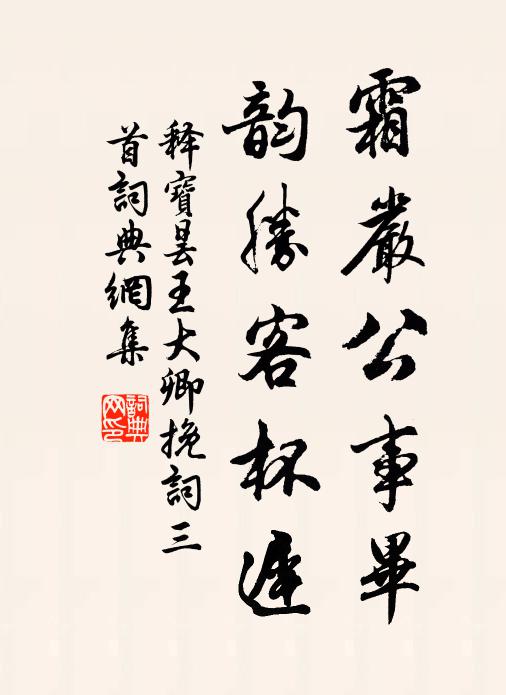 霜嚴公事畢
韵勝客杯遲
释寶昙王大卿挽詞三
首詞典網集
詞典
网印